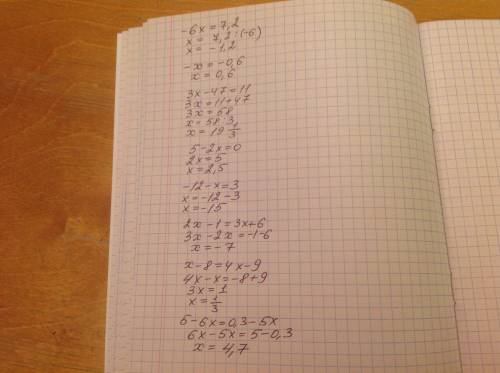 -6x = 7,2
x = 7,2 : (-6)
x = -1,2
-x = -0,6
x = 0,6
3x - 47 = 11
3x = 11 + 47
3x = 58
x = 58 : 3
x = 19 1/3
5 - 2x = 0
2x = 5
x = 2,5
-12 - x = 3
x = -12 - 3
x = -15
2x - 1 = 3x + 6
3x - 2x = -1 - 6
x = -7
x - 8 = 4x - 9
4x - x = -8 + 9
3x = 1
x = 1/3
5 - 6x = 0,3 - 5x
6x - 5x = 5 - 0,3
x = 4,7